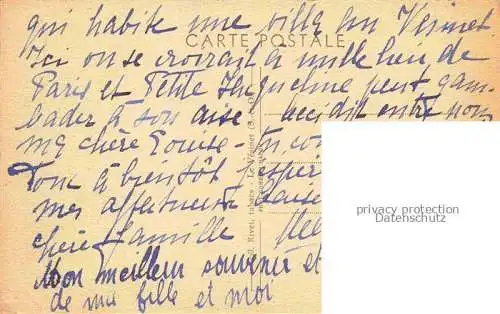 qui habite une villa au Vésinet.
CARTE POSTALE
Ici on se croirait à mille lieu de
Paris et Petite Jacqueline peut gam-
bader à son aise. decidit entre nous
ma chère Louise -
Tout à bientôt
mes affectueux
chère famille
Mon meilleur souvenir et
de ma fille et moi
Rivet, tabacs - Le Vésinet (S.-&-O.)
privacy protection
Datenschutz